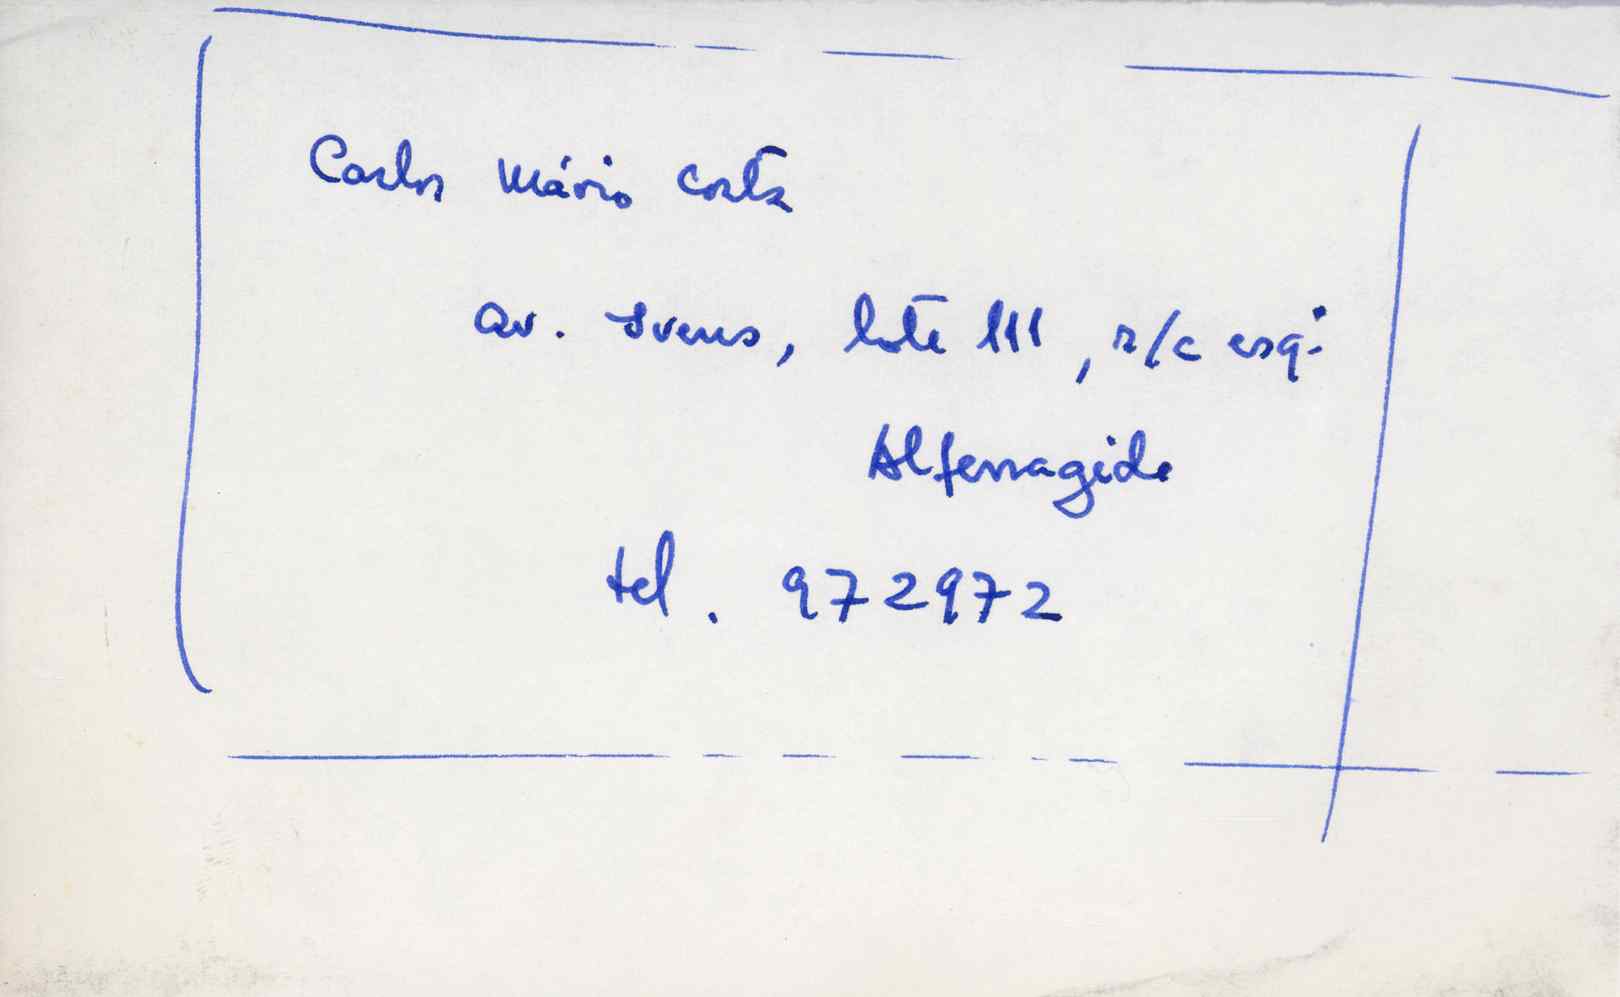 Carlos Mário Costa
Av. Ivens, lote 111, r/c esqº
Alferragide
tel. 972972